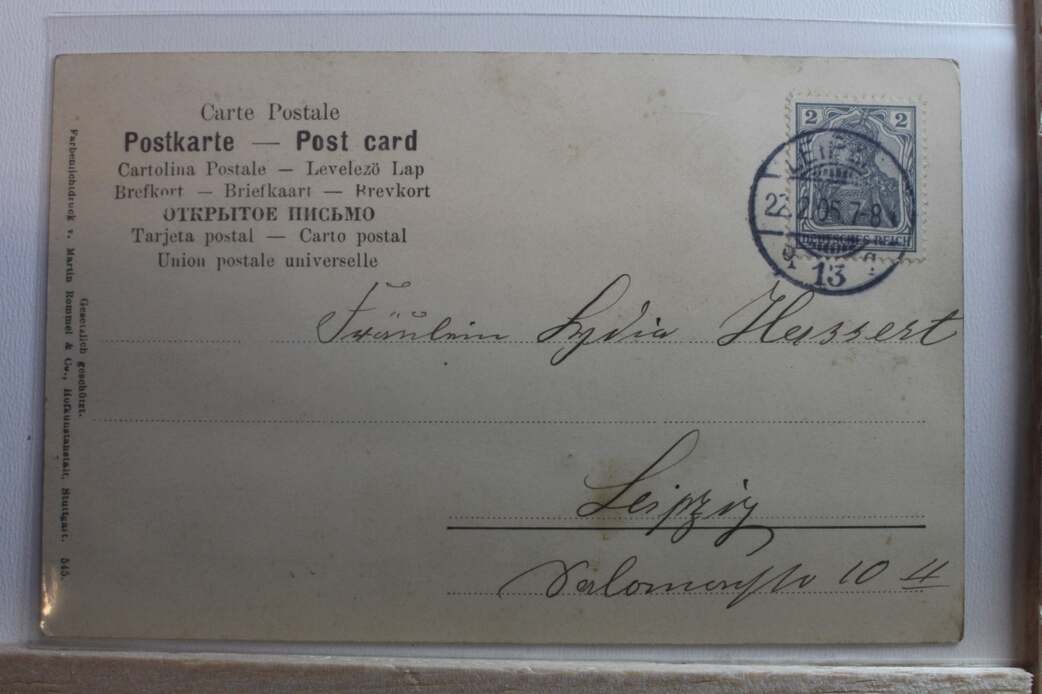 Carte Postale
Postkarte — Post card
Cartolina Postale — Levelező Lap
Brefkort — Briefkaart — Brevkort
ОТКРЫТОЕ ПИСЬМО
Tarjeta postal — Carto postal
Union postale universelle
2 2
DEUTSCHES REICH
LEIPZIG
2.05.7-8
13
Fräulein Lydia Hassert
Leipzig
Salomonstr 10 II
Gesetzlich geschützt.
Farbenlichtdruck v. Martin Rommel & Co., Hofkunstanstalt, Stuttgart. 545.